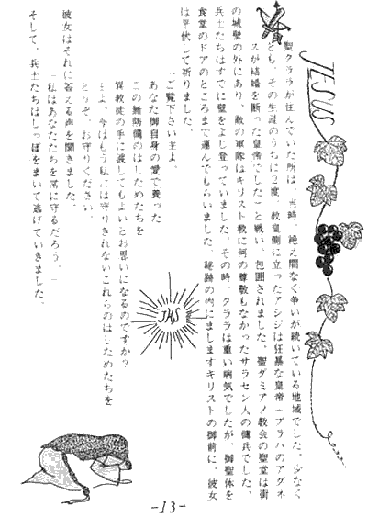 JESUS
聖クララが住んでいた所は、当時、絶え間なく争いが続いている地域でした。少なく
とも、その生涯のうちに2度、教皇側に立ったアシジは狂暴な皇帝(プラハのアグネ
スが結婚を断った皇帝でした)と戦い、包囲されました。聖ダミアノ教会の聖堂は街
の城壁の外にあり、敵の軍隊はキリスト教に何の尊敬もなかったサラセン人の傭兵でした。
兵士たちはすでに壁をよじ登っていました。その時、クララは重い病気でしたが、御聖体を
食堂のドアのところまで運んでもらいました。秘跡の内にましますキリストの御前に、彼女
は平伏して祈りました。
「ご覧下さい主よ。
あなた御自身の愛で養った
この無防備のはしためたちを
異教徒の手に渡してもよいとお思いになるのですか?
主よ、今はもう私には守りきれないこれらのはしためたちを
どうぞ、お守りください。」
彼女はそれに答える声を聞きました。
「私はあなたたちを常に守るだろう。」
そして、兵士たちはしっぽをまいて逃げていきました。
JHS
-13-